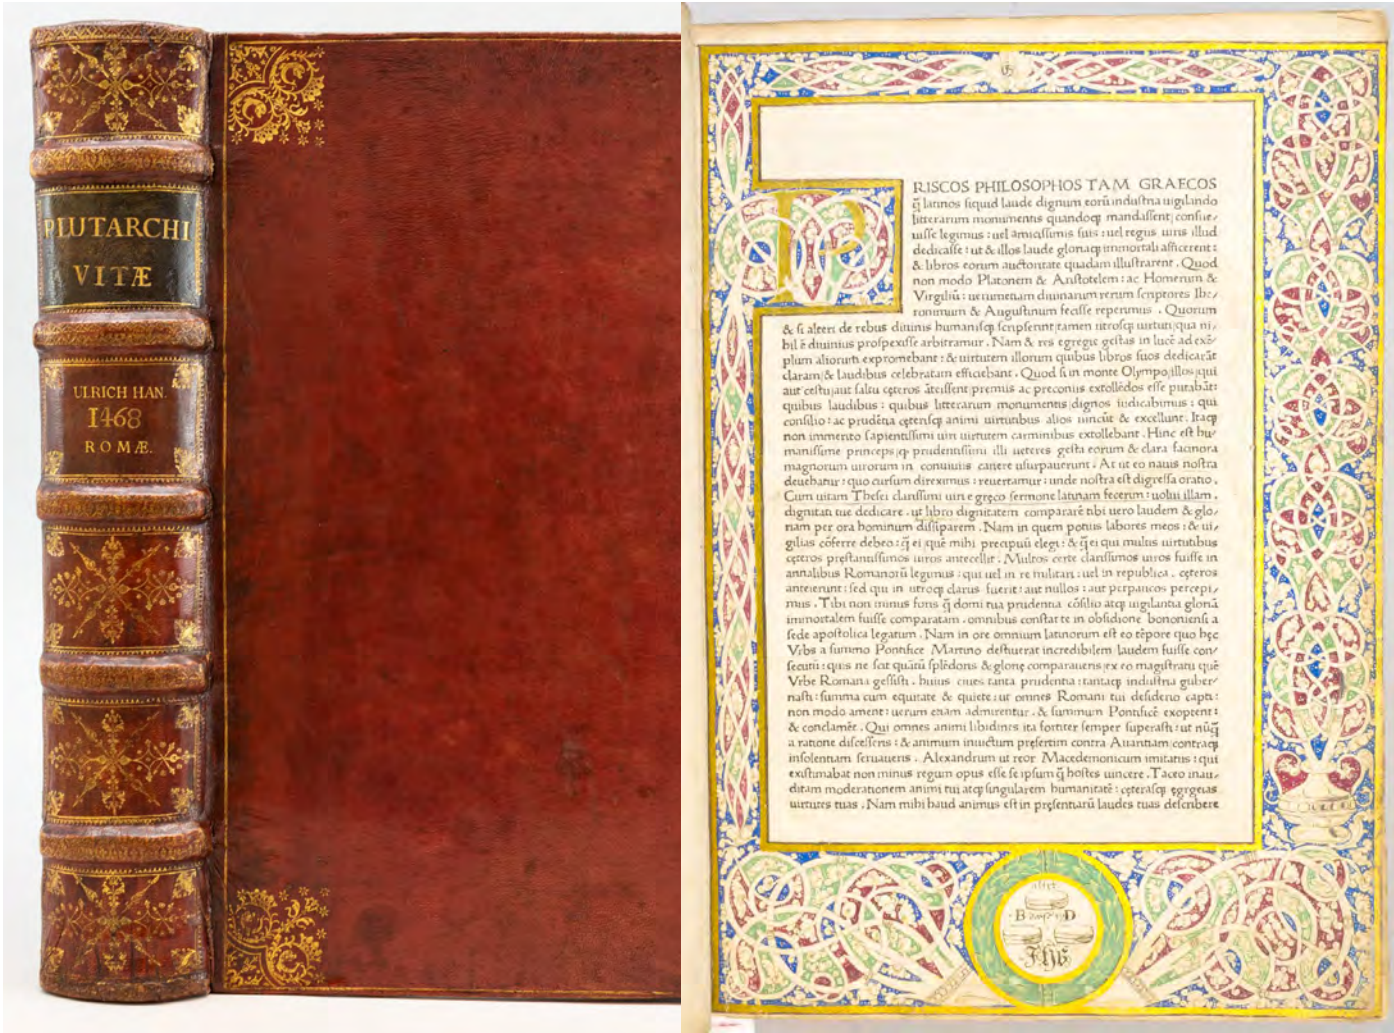 PLUTARCHI
VITÆ
ULRICH HAN.
1468
ROMÆ.
P
RISCOS PHILOSOPHOS TAM GRAECOS
q̄ latinos siquid laude dignum eorū industria uigilando
litterarum monumentis quandoqꝫ mandassent: consue/
uisse legimus: uel amicissimis suis: uel regiis uiris illud
dedicasse: ut & illos laude gloriaqꝫ immortali afficerent:
& libros eorum auctoritate quadam illustrarent. Quod
non modo Platonem & Aristotelem: ac Homerum &
Virgiliū: uerumetiam diuinarum rerum scriptores Ihe/
ronimum & Augustinum fecisse reperimus. Quorum
& si alteri de rebus diuinis humanisqꝫ scripserint: tamen utrosqꝫ uirtuti qua ni/
hil ē diuinius prospexisse arbitramur. Nam & res egregie gestas in lucē ad exē/
plum aliorum expromebant: & uirtutem illorum quibus libros suos dedicarāt
claram & laudibus celebratam efficiebant. Quod si in monte Olympo illos qui
aut cestu aut saltu cęteros āteissent premiis ac preconiis extollēdos esse putabāt:
quibus laudibus: quibus litterarum monumentis dignos iudicabimus: qui
consilio: ac prudētia cęterisqꝫ animi uirtutibus alios uincūt & excellunt. Itaqꝫ
non immerito sapientissimi uiri uirtutem carminibus extollebant. Hinc est hu/
manissime princeps qꝫ prudentissimi illi ueteres gesta eorum & clara facinora
magnorum uirorum in conuiuiis canere usurpauerunt. At ut eo nauis nostra
deuehatur: quo cursum direximus: reuertamur: unde nostra est digressa oratio.
Cum uitam Thesei clarissimi uiri e gręco sermone latinam fecerim: uolui illam.
dignitati tue dedicare. ut libro dignitatem compararē tibi uero laudem & glo/
riam per ora hominum dissiparem. Nam in quem potius labores meos: & ui/
gilias cōferre debeo: q̄ ei quē mihi precipuū elegi: & q̄ ei qui multis uirtutibus
cęteros pręstantissimos uiros antecellit. Multos certe clarissimos uiros fuisse in
annalibus Romanorū legimus: qui uel in re militari: uel in republica. cęteros
anteierunt: sed qui in utroqꝫ clarus fuerit: aut nullos: aut perpaucos percepi/
mus. Tibi non minus foris q̄ domi tua prudentia cōsilio atqꝫ uigilantia gloriā
immortalem fuisse comparatam. omnibus constat te in obsidione bononiensi a
sede apostolica legatum. Nam in ore omnium latinorum est eo tēpore quo hęc
Vrbs a summo Pontifice Martino destituerat incredibilem laudem fuisse con/
secutū: quis ne scit quātū splēdoris & glorię comparaueris ex eo magistratu quē
Vrbe Romana gessisti. huius ciues tanta prudentia: tantaqꝫ industria guber/
nasti: summa cum equitate & quiete: ut omnes Romani tui desiderio capti:
non modo ament: uerum etiam admirentur. & summum Pontificē exoptent:
& conclamēt. Qui omnes animi libidines ita fortiter semper superasti: ut nūq̄
a ratione discesseris: & animum inuictum pręsertim contra Auaritiam: contraqꝫ
insolentiam seruaueris. Alexandrum ut reor Macedemonicum imitatus: qui
existimabat non minus regium opus esse se ipsum q̄ hostes uincere. Taceo inau/
ditam moderationem animi tui atqꝫ singularem humanitatē: cęterasqꝫ egrgeias
uirtutes tuas. Nam mihi haud animus est in pręsentiarū laudes tuas describere
B D